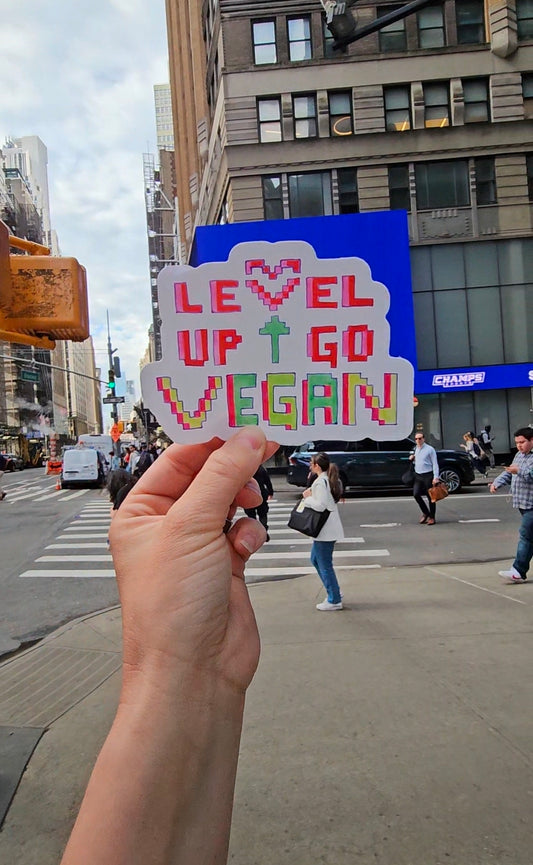 LEVEL
UP GO
VEGAN
CHAMPS